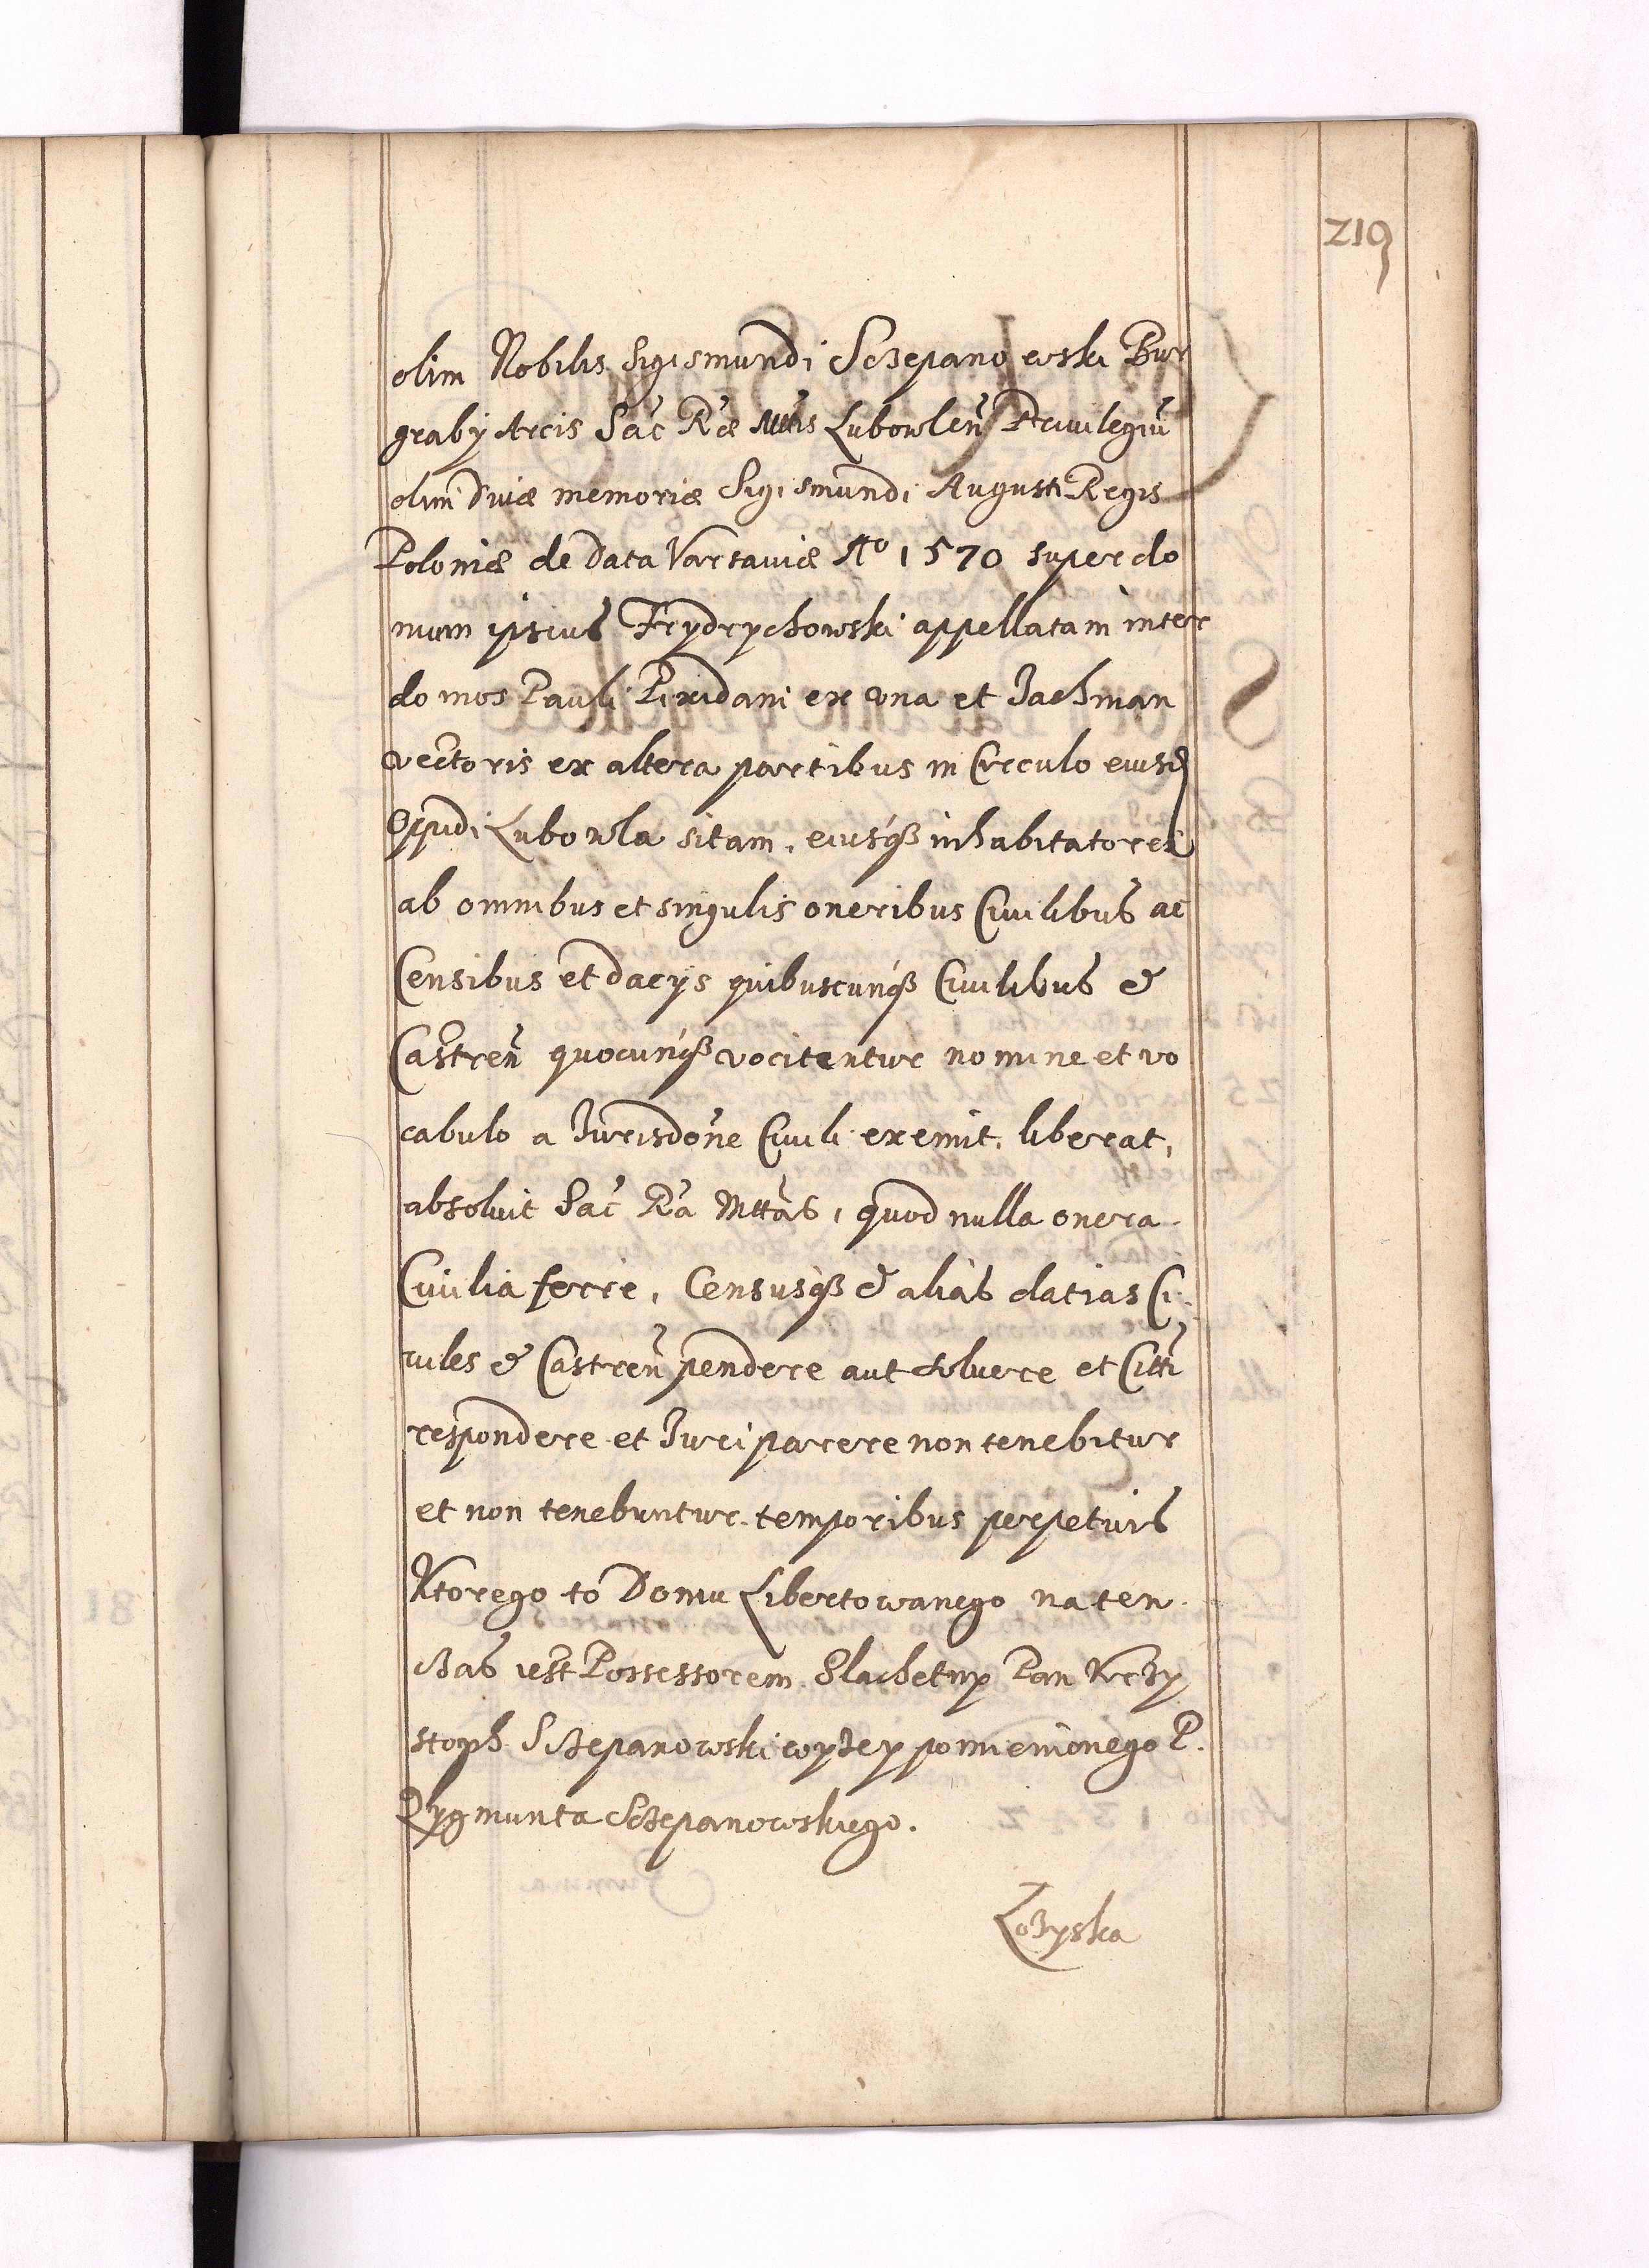 219
olim Nobilis Sigismundi Sczepanowski Bur
graby Arcis Sac Ræ Mttis Lubowlen Priuilegiu
olim Diuæ memoriæ Sigismundi Augusti Regis
Poloniæ de data Varsauiæ Aº 1570 super do
mum ipsius Frydrychowski appellatam inter
domos Pauli Pixidani ex vna et Jachman
vectoris ex altera partibus in Circulo eiusd
Oppidi Lubowla sitam, eiusqß inhabitatores
ab omnibus et singulis oneribus Ciuilibus ac
Censibus et dacys quibuscunqß Ciuilibus &
Castren quocunqß vocitentur nomine et vo
cabulo a Jurisdone Ciuili exemit, liberat,
absoluit Sac Ra Mttas, quod nulla onera
Ciuilia ferre, Censusqß & alias datias Ci
uiles & Castren pendere aut soluere et Citti
respondere et Juri parere non tenebitur
et non tenebuntur temporibus perpetuis
Ktorego to Domu Libertowanego na ten
czas iest Possessorem Slachetny Pan Krzy
stoph Sczepanowski wyzey pomienionego P.
Zygmunta Sczepanowskiego.
Lozyska